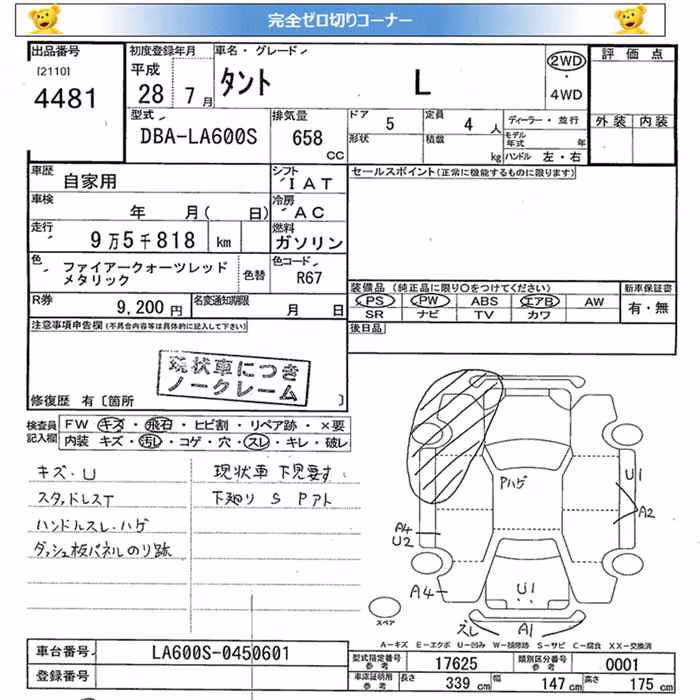 完全ゼロ切りコーナー
出品番号
[2110]
4481
初度登録年月
平成
28 7月
車名・グレード
タント L
2WD
・
4WD
評価点
外装 内装
型式
DBA-LA600S
排気量
658
CC
ドア 5
形状
定員 4 人
積載 kg
ディーラー・並行
モデル年式 年
ハンドル 左・右
車歴
自家用
シフト
IAT
車検
年 月( 日)
冷房
AC
走行
9万5千818 km
燃料
ガソリン
色
ファイアークォーツレッド
メタリック
色替
色コード
R67
R券
9,200円
名変通知期限
月 日
セールスポイント(正常に機能するものに限ります)
装備品(純正品に限り〇をつけてください)
PS PW ABS エアB AW
SR ナビ TV カワ
新車保証書
有・無
後日品
注意事項申告欄(不具合内容等は具体的に記入して下さい)
現状車につき
ノークレーム
修復歴 有〔箇所 〕
検査員
記入欄
FW キズ・飛石・ヒビ割・リペア跡・×要
内装 キズ・汚レ・コゲ・穴・スレ・キレ・破レ
キズ・U
スタッドレスT
ハンドルスレ・ハゲ
ダッシュ板パネルのり跡
現状車 下見要す
下廻り S Pアト
Pハゲ
U1
A2
A4
U2
A4
U1
ズレ
A1
スペア
A-キズ E-エクボ U-凹み W-補修跡 S-サビ C-腐食 XX-交換済
車台番号
LA600S-0450601
登録番号
型式指定番号
参考
17625
類別区分番号
参考
0001
車庫証明用
参考
長さ 339 cm 幅 147 cm 高さ 175 cm